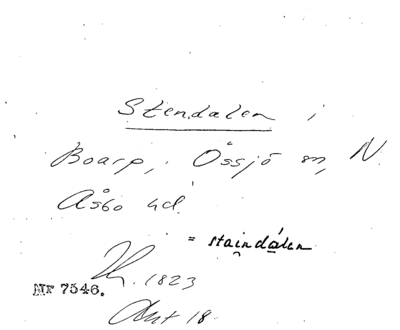 Stendalen i
Boarp, Össjö sn, N.
Åsbo hd.
= staindálen
1823
NF 7546.
Akt 18